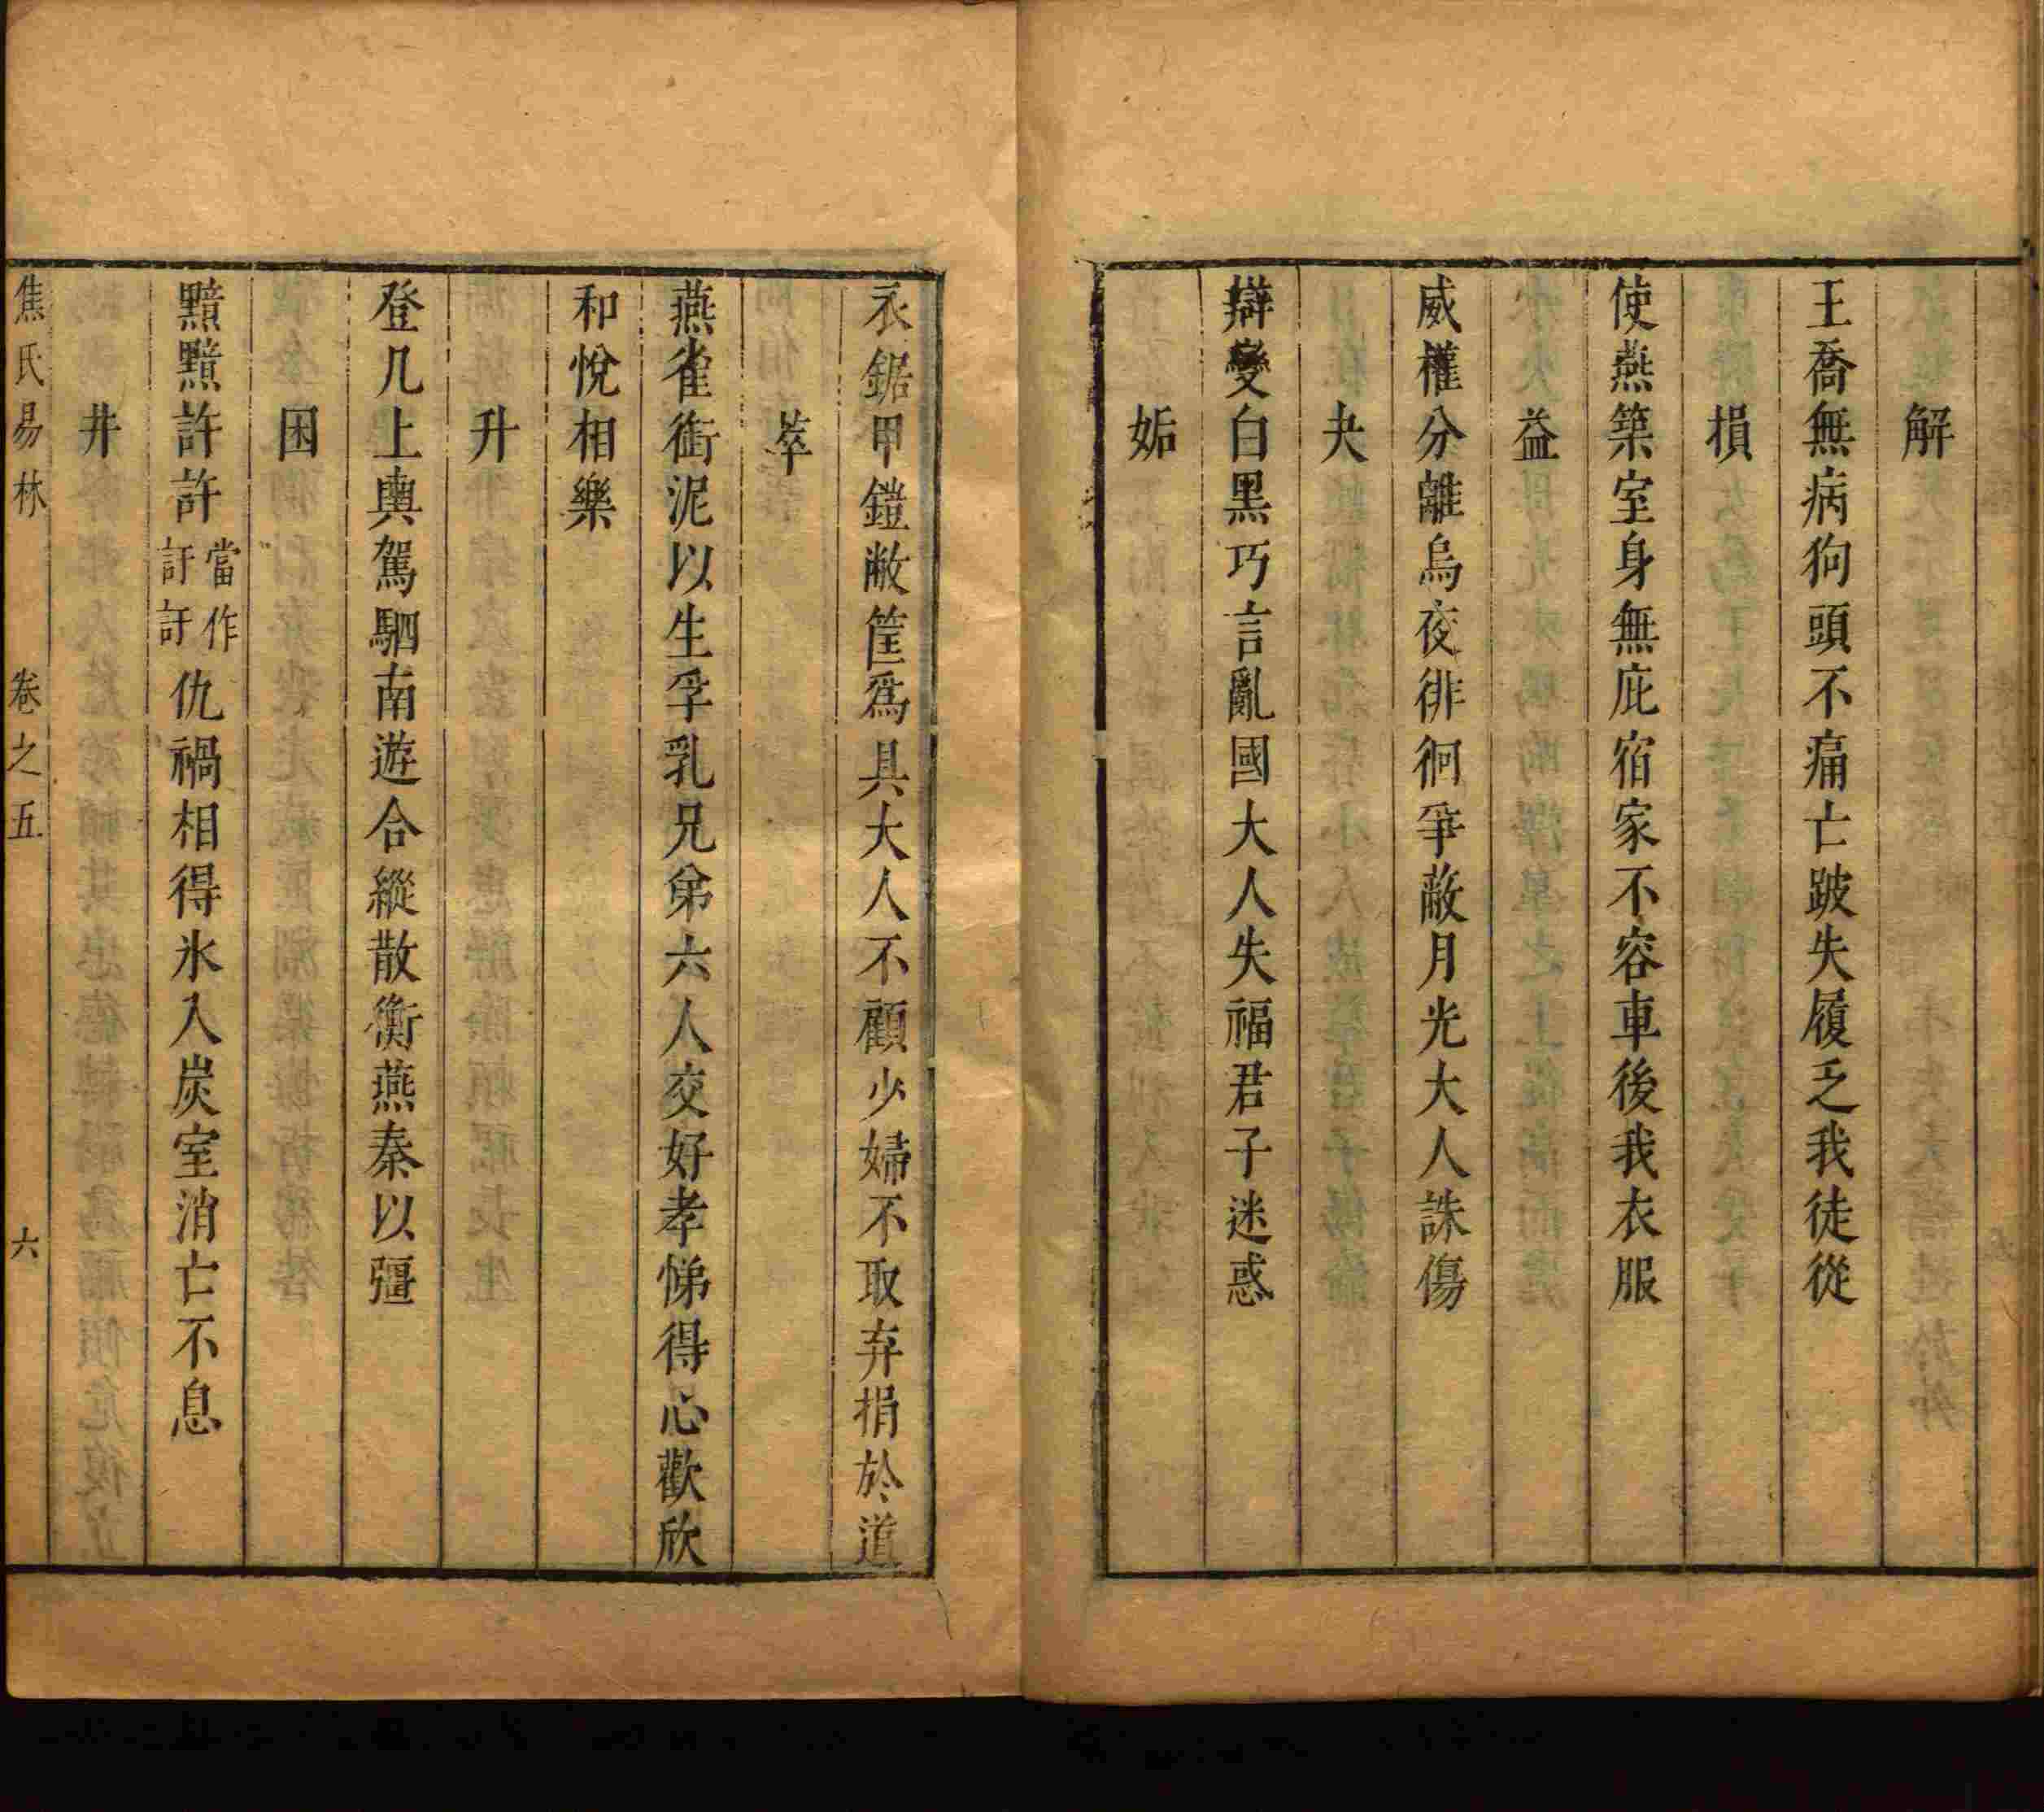 解
王喬無病狗頭不痛亡跛失履乏我徒從
損
使燕築室身無庇宿家不容車後我衣服
益
威權分離烏夜徘徊爭蔽月光大人誅傷
夬
辯變白黑巧言亂國大人失福君子迷惑
姤
衣鋸甲鎧敝筐爲具大人不顧少婦不取弃捐於道
萃
燕雀銜泥以生孚乳兄弟六人交好孝悌得心歡欣
和悅相樂
升
登几上輿駕駟南遊合縱散衡燕秦以彊
困
黯黯許許當作訏訏仇禍相得氷入炭室消亡不息
井
焦氏易林 卷之五 六